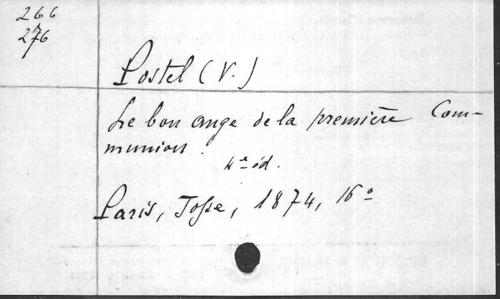 266
276
Postel (V.)
Le bon ange de la première Com-
munion.
4e éd.
Paris, Tosse, 1874, 16o